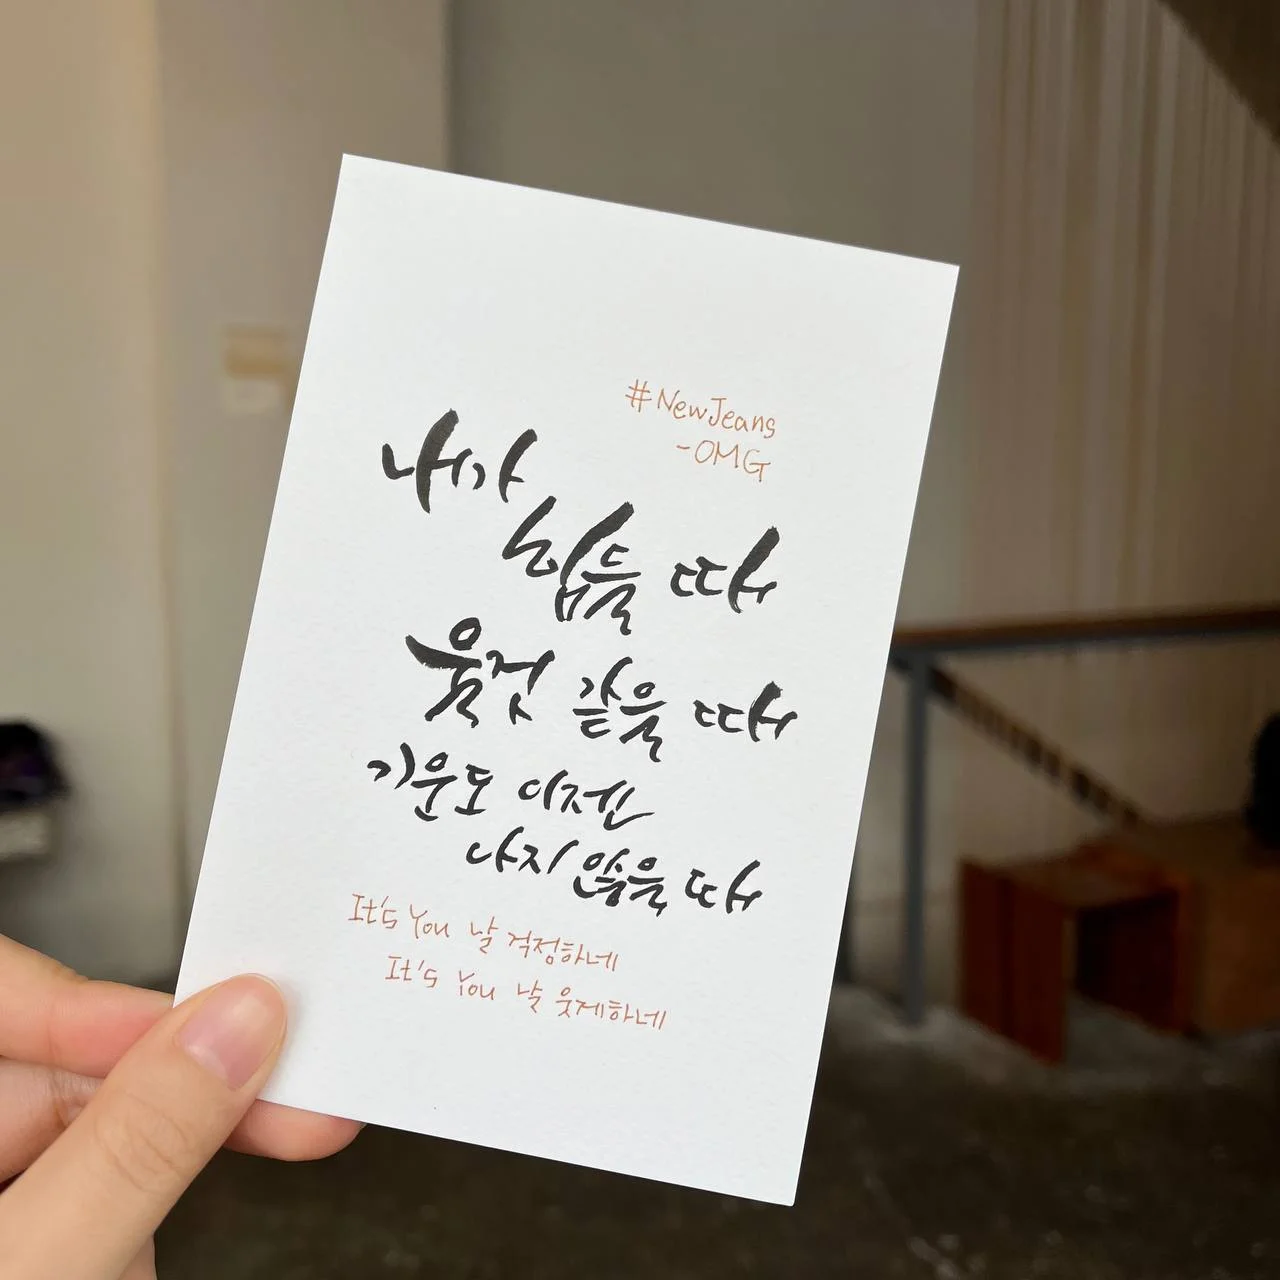 #NewJeans
-OMG
내가
힘들 때
웃젓 같을 때
기운도 이젠
나지 않을 때
It's You 날 걱정하네
It's You 날 웃게하네